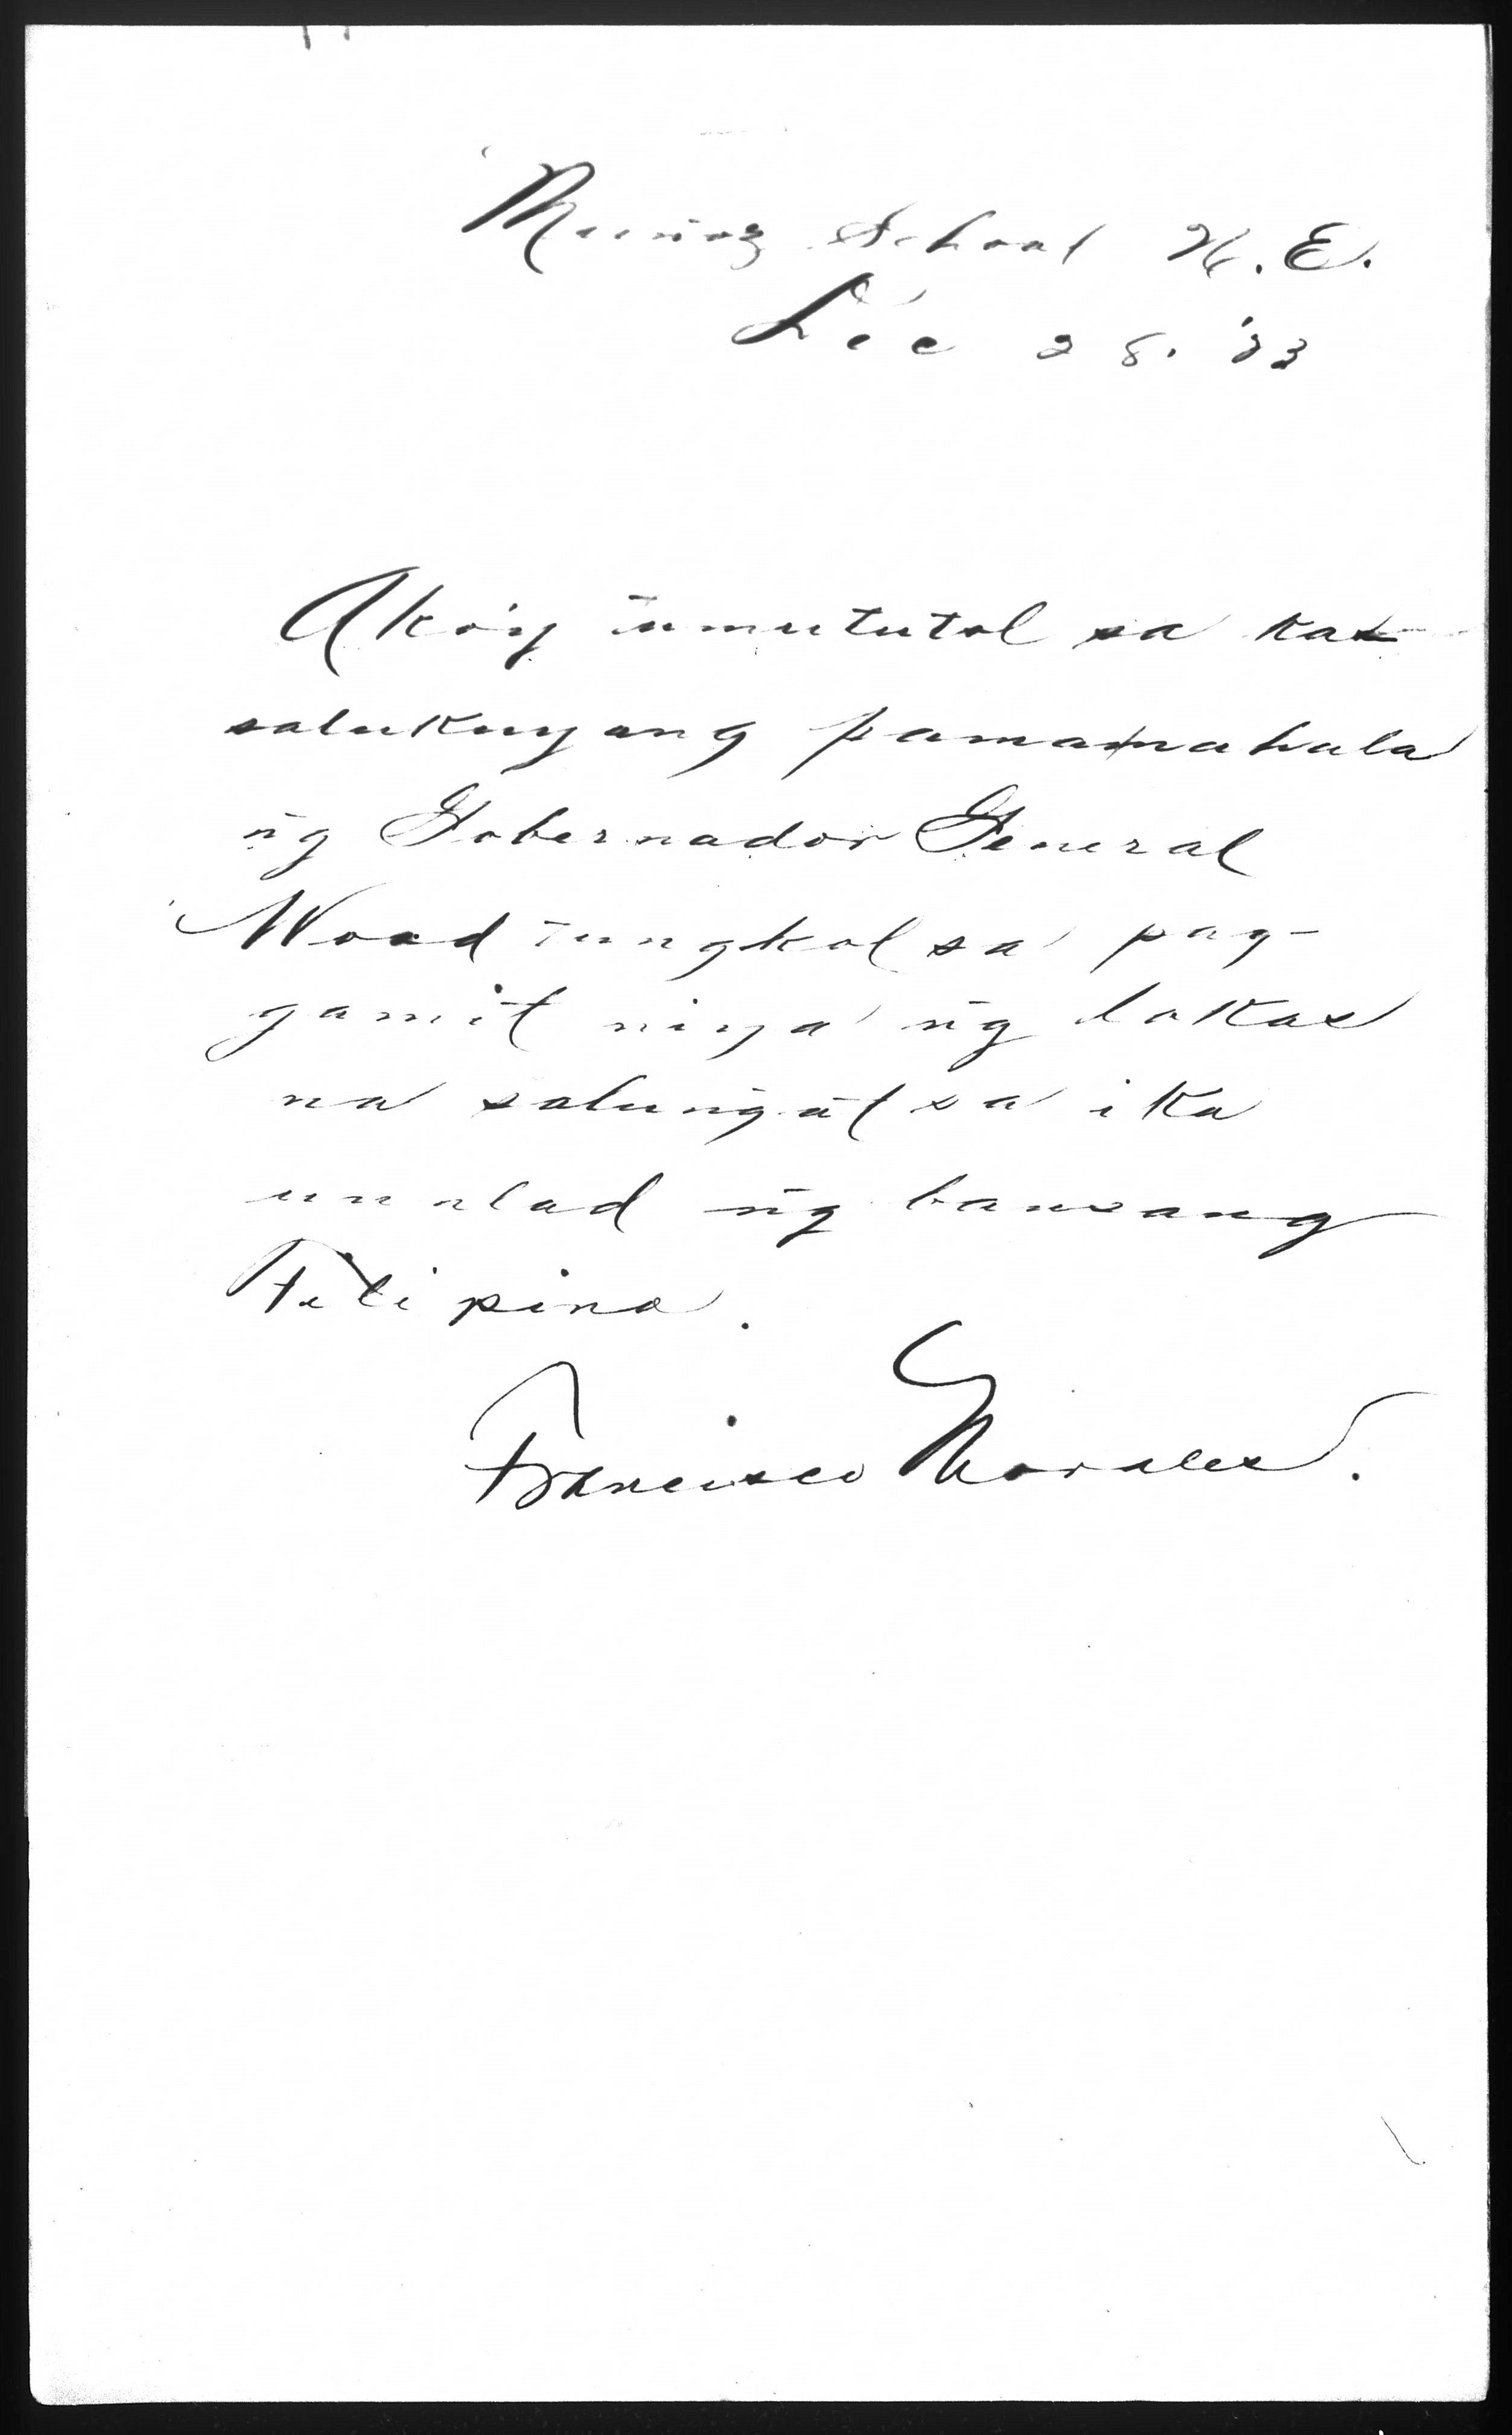 Muñoz School N. E.
Dec 28. '23
Ako'y tumututol sa kas-
salukuyang pamamahala
n̄g Gobernador General
Wood tungkol sa pag-
gamit niya n̄g lakas
na salun̄gat sa ika
unalad n̄g bansang
Filipino.
Francisco Morales.